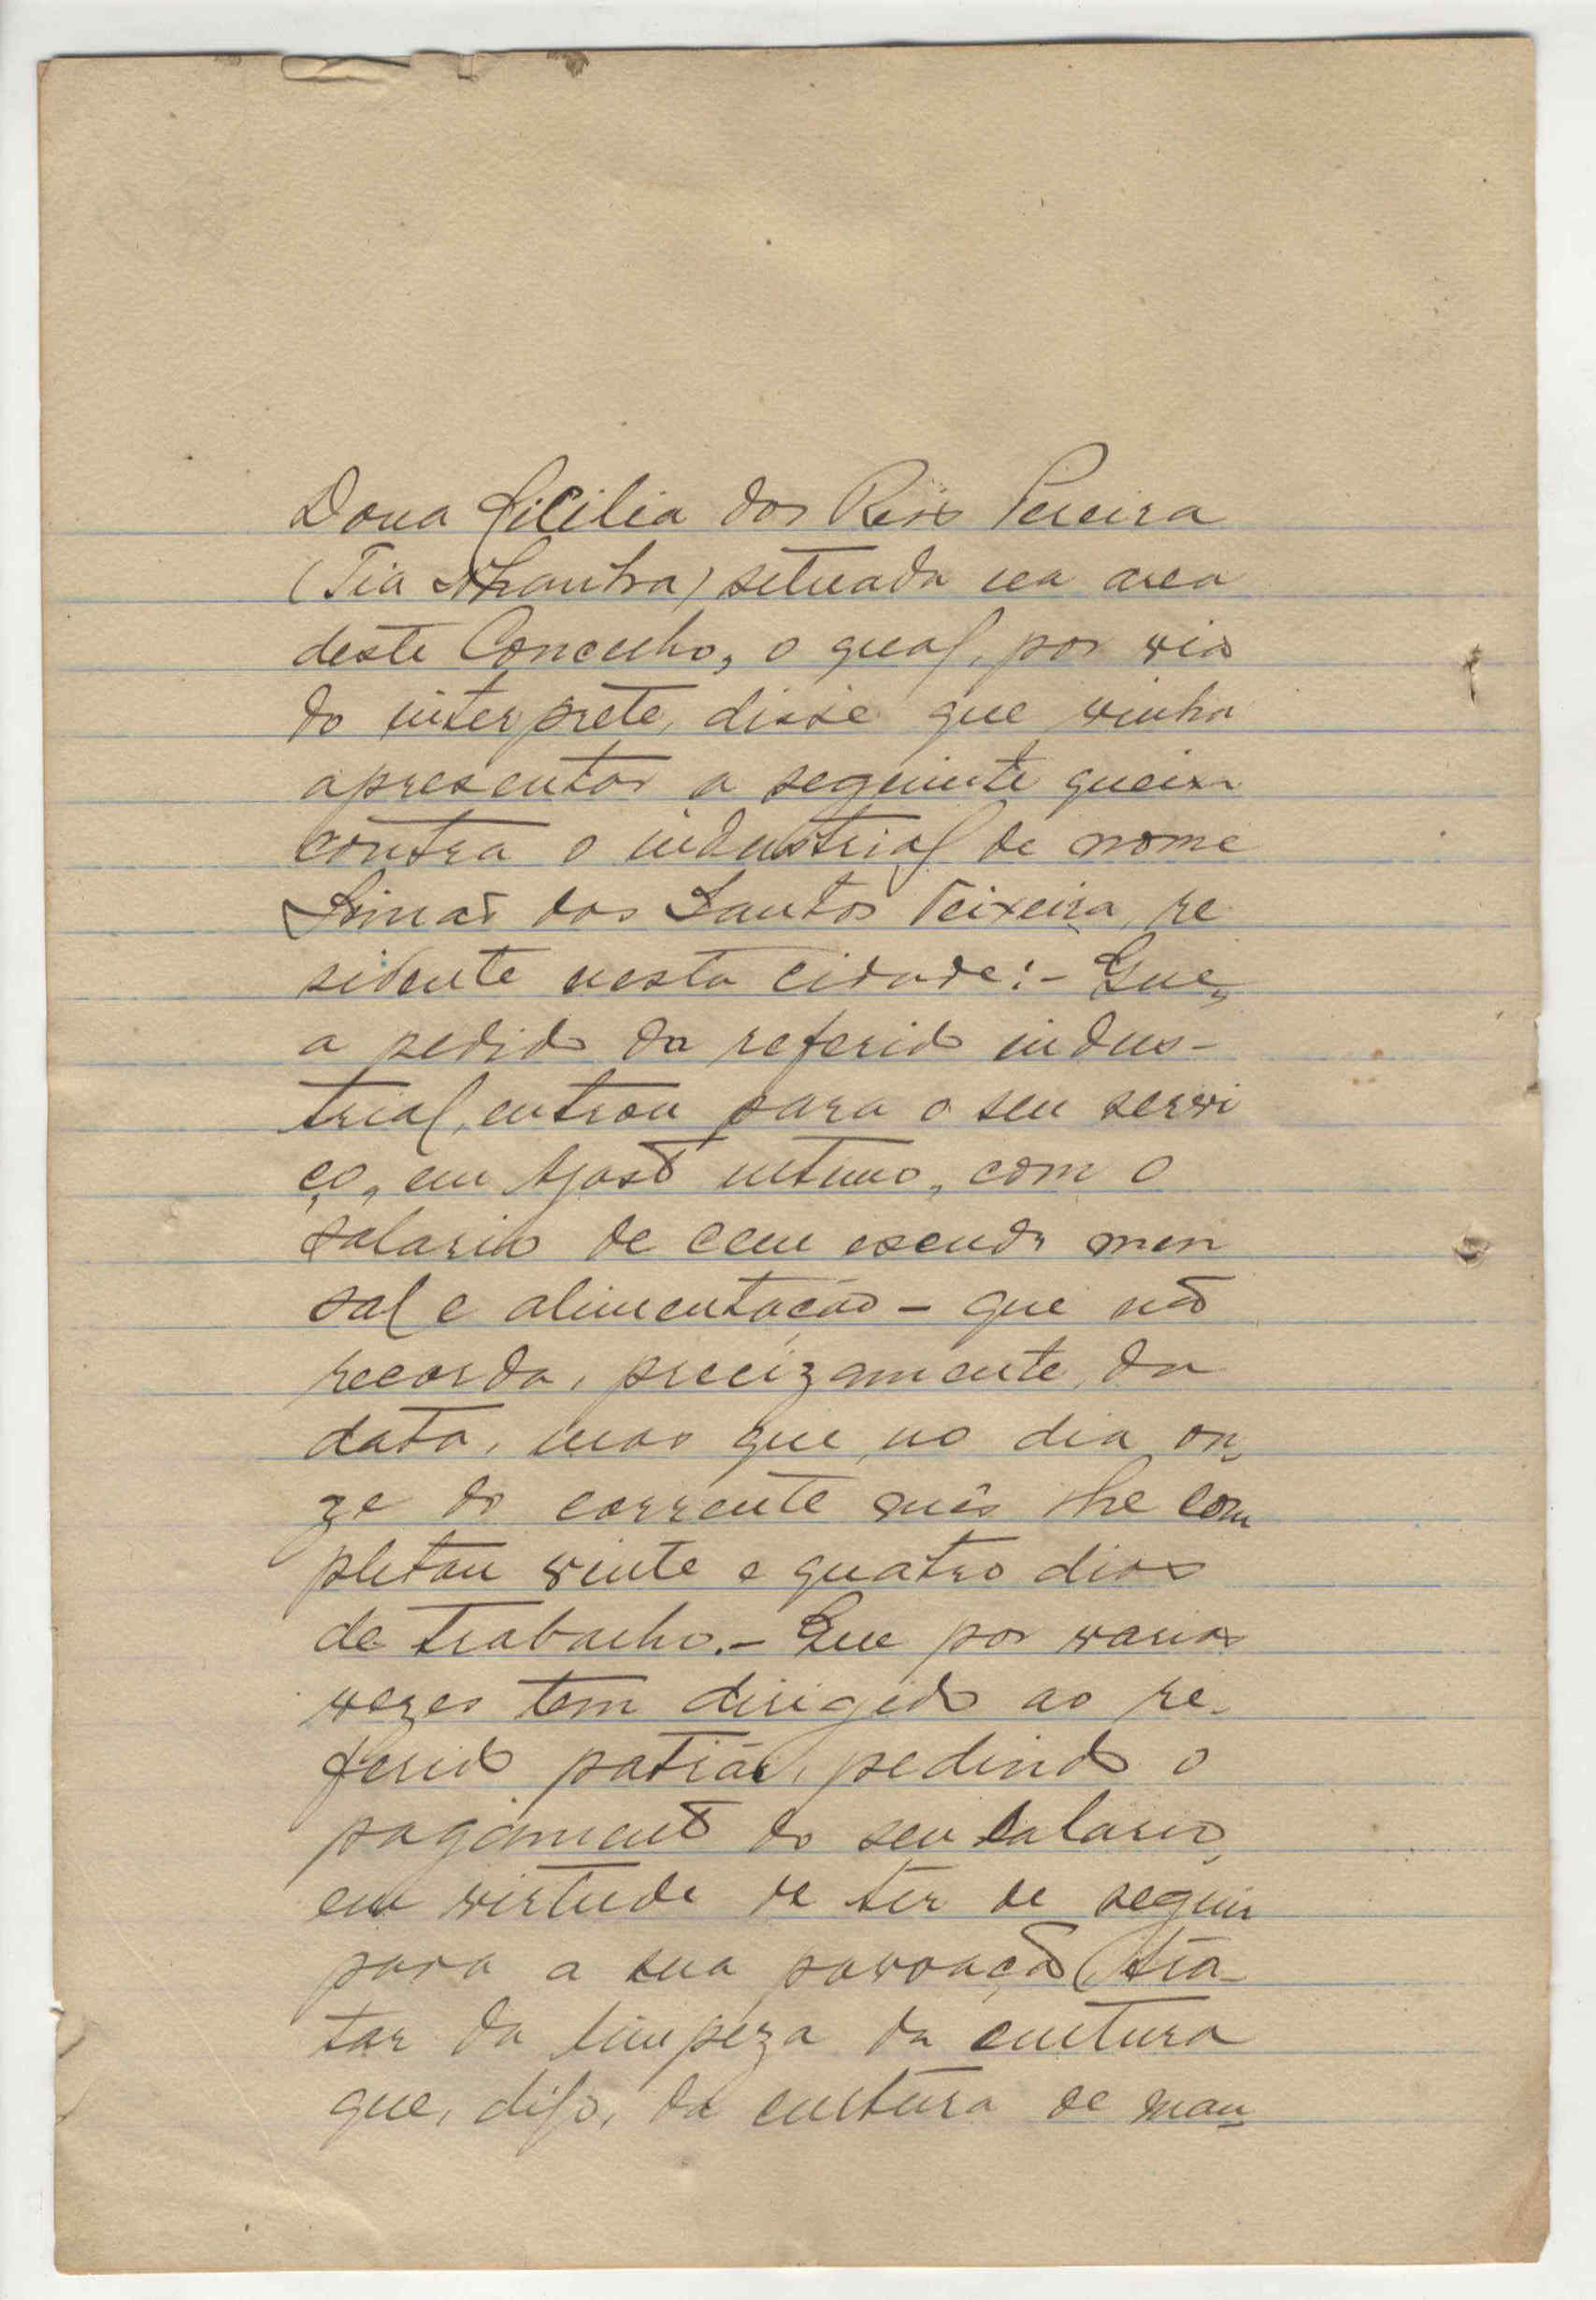 Dona Licilia dos Reis Pereira
(Tia Nhanha) situada na area
deste Concelho, o qual, por via
do interprete, disse que vinha
apresentar a seguinte queixa
contra o industrial de nome
dos Santos Teixeira, re
sidente nesta cidade:- Que,
a pedido do referido indus-
trial, entrou para o seu servi
ço, em Agosto ultimo, com o
salario de cem escudos men
sal e alimentação - que não
recorda, precizamente, da
data, mas que, no dia on,
ze do corrente mês lhe com
pletou vinte e quatro dias
de trabalho.- Que por varias
vezes tem dirigido ao re-
ferido patrão, pedindo o
pagamento do seu salario,
em virtude de ter de seguir
para a sua povoação (tra-
tar da limpeza da cultura
que, digo, da cultura de man-